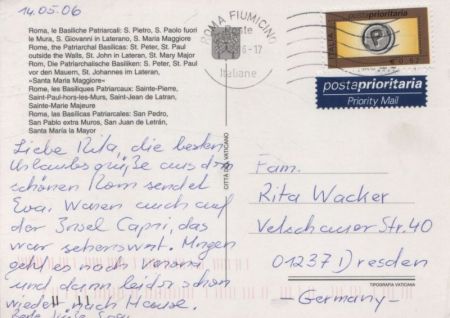 14.05.06
Roma, le Basiliche Patriarcali: S. Pietro, S. Paolo fuori
le Mura, S. Giovanni in Laterano, S. Maria Maggiore
Rome, the Patriarchal Basilicas: St. Peter, St. Paul
outside the Walls, St. John in Lateran, St. Mary Major
Rom, Die Patriarchalische Basiliken: St. Peter, St. Paul
vor den Mauern, St. Johannes im Lateran,
«Santa Maria Maggiore»
Rome, les Basiliques Patriarcaux: Sainte-Pierre,
Saint-Paul-hors-les-Murs, Saint-Jean de Latran,
Sainte-Marie Majeure
Roma, las Basílicas Patriarcales: San Pedro,
San Pablo extra Muros, San Juan de Letrán,
Santa María la Mayor
Liebe Rita, die besten
Urlaubsgrüße aus dem
schönen Rom sendet
Eva. Waren auch auf
der Insel Capri, das
war sehenswert. Morgen
geht es nach Verona
und dann leider schon
wieder nach Hause.
CITTÀ DEL VATICANO
ROMA FIUMICINO
Poste
6-17
Italiane
postaprioritaria
ITALIA
P
€ 0,62
postaprioritaria
Priority Mail
Fam.
Rita Wacker
Str. 40
01237 Dresden
- Germany -
TIPOGRAFIA VATICANA